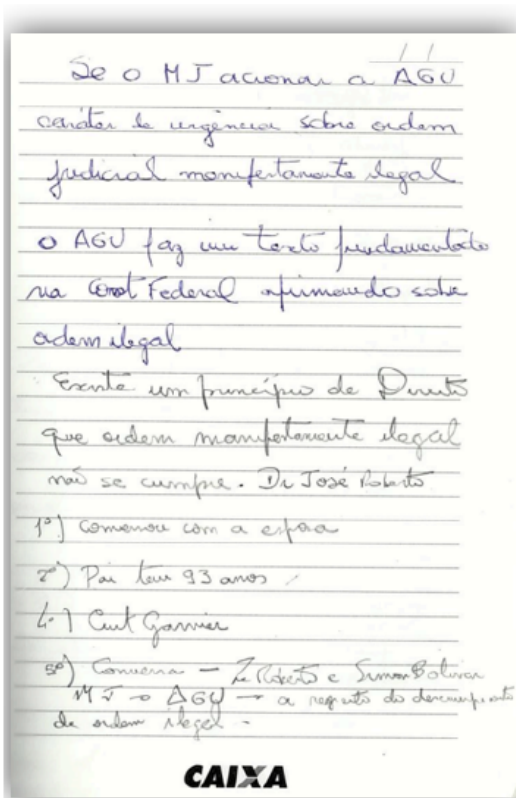 / /
Se o MJ acionar a AGU
caráter de urgência sobre ordem
judicial manifestamente ilegal
o AGU faz um texto fundamentado
na Const Federal afirmando sobre
ordem ilegal
Existe um princípio de Direito
que ordem manifestamente ilegal
não se cumpre. Dr José Roberto
1º) Comenou com a
2º) Pai tem 93 anos
4.)
5º) Conversa - Zé Roberto e Simon Bolivar
MJ → AGU → a respeito do descumprimento
de ordem ilegal -
CAIXA